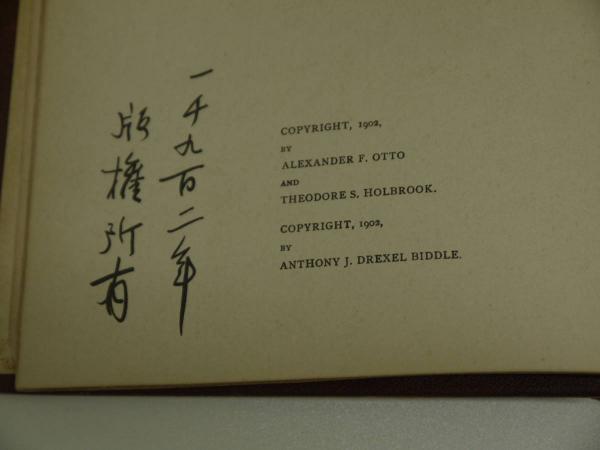 一千九百二年
版權所有
COPYRIGHT, 1902,
BY
ALEXANDER F. OTTO
AND
THEODORE S. HOLBROOK.
COPYRIGHT, 1902,
BY
ANTHONY J. DREXEL BIDDLE.